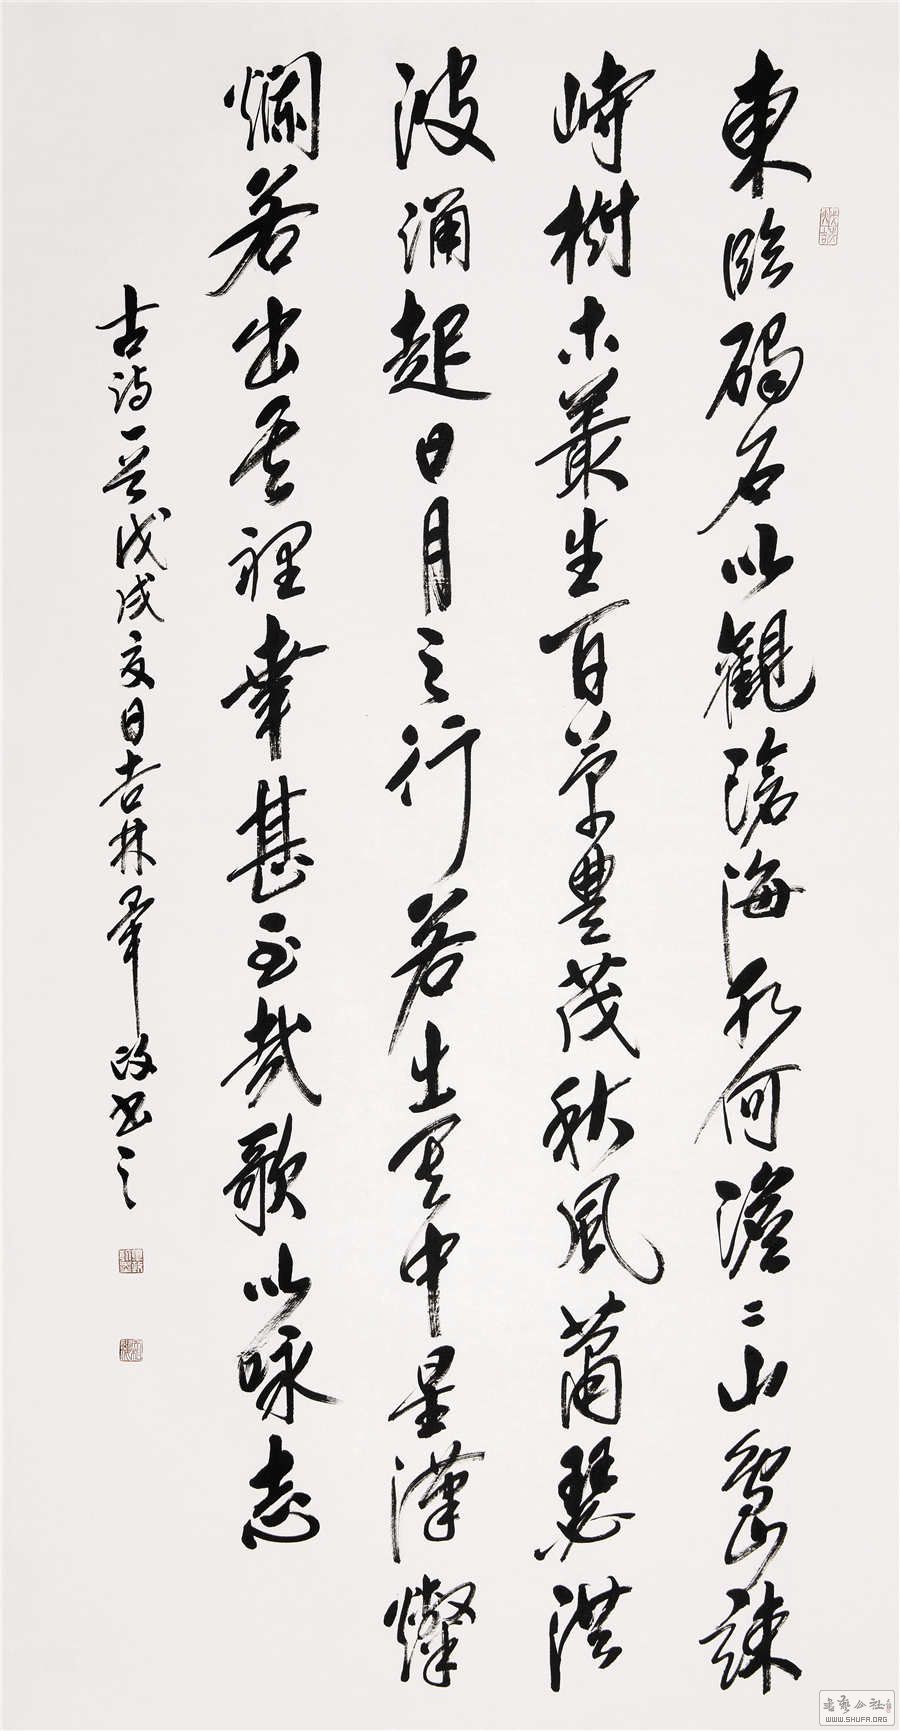 東臨碣石以觀滄海水何澹〻山島竦
峙樹木叢生百草豊茂秋風蕭瑟洪
波涌起日月之行若出其中星漢燦
爛若出其裡幸甚至哉歌以咏志
古詩一首戊戌夏日吉林政書之
書藝公社
WWW.SHUFA.ORG